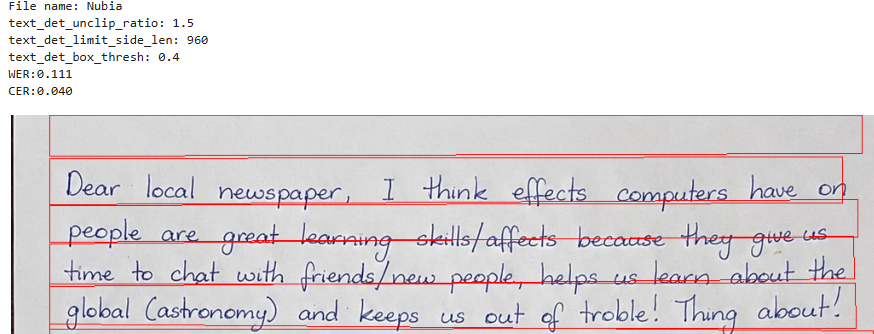 File name: Nubia
text_det_unclip_ratio: 1.5
text_det_limit_side_len: 960
text_det_box_thresh: 0.4
WER:0.111
CER:0.040
Dear local newspaper, I think effects computers have on
people are great learning skills/affects because they give us
time to chat with friends/new people, helps us learn about the
global (astronomy) and keeps us out of troble! Thing about!